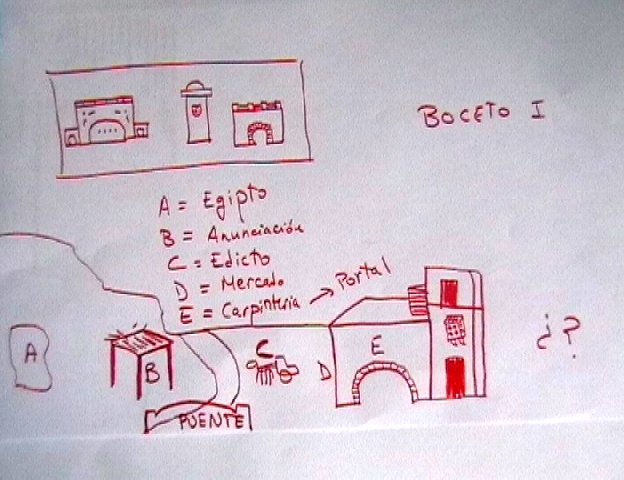 BOCETO I
A = Egipto
B = Anunciación
C = Edicto
D = Mercado
E = Carpinteria → Portal
A
B
C
D
E
¿?
PUENTE